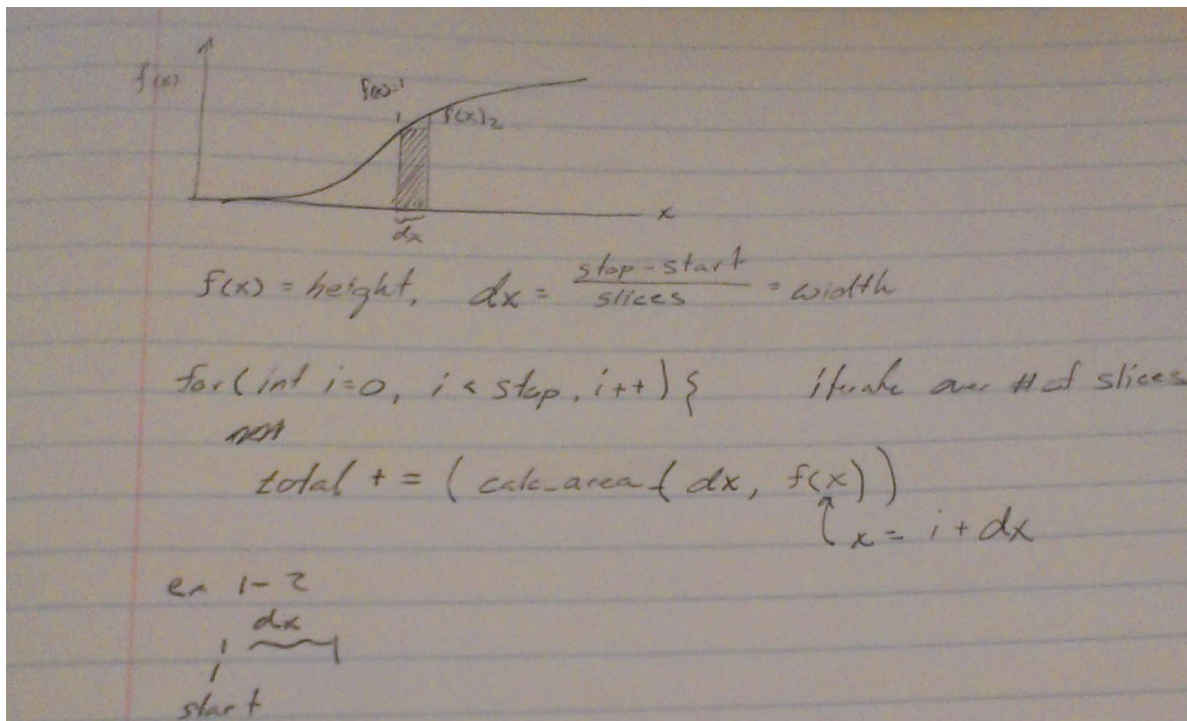 f(x)
f(x)1
f(x)2
x
dx
f(x) = height, dx = stop-start / slices = width
for(int i=0, i < stop, i++){ iterate over # of slices
total += (calc_area(dx, f(x))
x = i + dx
1-2
dx
start